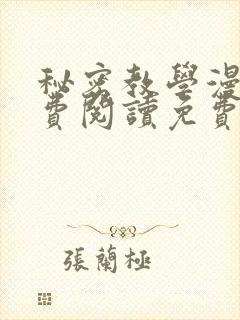 秘密教學漫
費閱讀免費
張蘭極